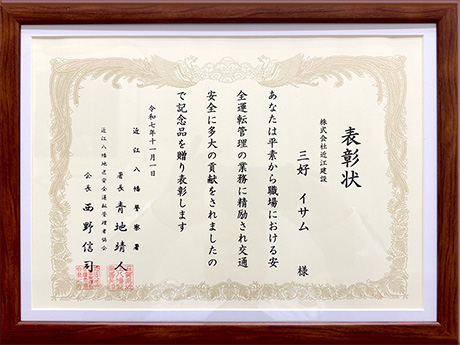 表彰状
株式会社近江建設
三好 イサム 様
あなたは平素から職場における安
全運転管理の業務に精励され交通
安全に多大の貢献をされましたの
で記念品を贈り表彰します
令和七年十一月一日
近江八幡警察署
署長 青地靖人
近江八幡地区安全運転管理者協会
会長 西野信司